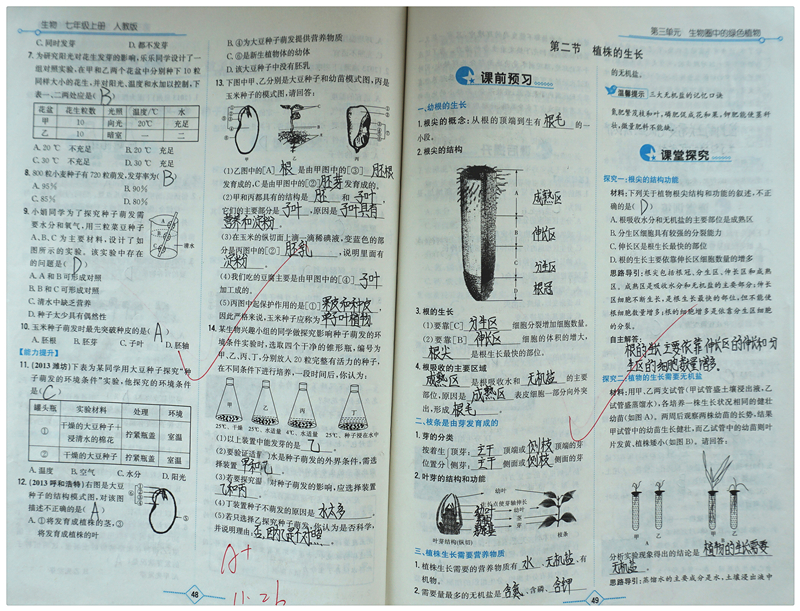 生物 七年级上册 人教版
C. 同时发芽 D. 都不发芽
7. 为研究阳光对花生发芽的影响,乐乐同学设计了一
组对照实验,在甲和乙两个花盆中分别种下 10 粒
同样大小的花生,并对阳光、温度和水加以控制,下
表一、二两处应是( B )
花盆 花生粒数 光照 温度/℃ 水
甲 10 向光 20℃ 充足
乙 10 暗室 一 二
A. 20 ℃ 不充足 B. 20 ℃ 充足
C. 30 ℃ 不充足 D. 30 ℃ 充足
8. 800 粒小麦种子有 720 粒萌发,发芽率为( B )
A. 95% B. 90%
C. 85% D. 80%
9. 小娟同学为了探究种子萌发需
要水分和氧气,用三粒菜豆种子
A、B、C 为主要材料,设计了如
图所示的实验。该实验中存在
的问题是( D )
清水
A. A 和 B 可形成对照
B. B 和 C 可形成对照
C. 清水中缺乏营养
D. 种子太少具有偶然性
10. 玉米种子萌发时最先突破种皮的是( A )
A. 胚根 B. 胚芽 C. 子叶 D. 胚轴
【能力提升】
11. (2013 潍坊)下表为某同学用大豆种子探究“种
子萌发的环境条件”实验,他探究的环境条件
是( C )
罐头瓶 实验材料 处理 环境
① 干燥的大豆种子+浸清水的棉花 拧紧瓶盖 室温
② 干燥的大豆种子 拧紧瓶盖 室温
A. 温度 B. 空气 C. 水分 D. 阳光
12. (2013 呼和浩特)右图是大豆
种子的结构模式图,对该图
描述不正确的是( A )
A. ①将发育成植株的茎,③
将发育成植株的叶
48
B. ④为大豆种子萌发提供营养物质
C. ⑤是新生植物体的幼体
D. 该大豆种子中没有胚乳
13. 下图中甲、乙分别是大豆种子和幼苗模式图,丙是
玉米种子的模式图,请回答:
甲 乙 丙
(1)乙图中的[A] 根 是由甲图中的[③] 胚根
发育成的,C 是由甲图中的[②] 胚芽 发育成的。
(2)甲和丙都具有的结构是 胚 和 子叶 ,
它们的主要部分是 子叶 ,原因是 子叶具有
营养和淀粉 。
(3)在玉米的纵切面上滴一滴稀碘液,变蓝色的部
分是丙图中的[②] 胚乳 ,说明里面有
淀粉 。
(4)我们吃的豆腐主要是由甲图中的[④] 子叶
加工成的。
(5)丙图中起保护作用的是[①] 果皮和种皮 ,
因此严格来说,玉米种子应称为 单子叶植物 。
14. 某生物兴趣小组的同学做探究影响种子萌发的环
境条件实验时,选取四个干净的锥形瓶,编号为
甲、乙、丙、丁,分别放入 20 粒完整有活力的种子,
在不同条件下进行培养,一段时间后,你认为:
甲 乙 丙 丁
25℃、干燥 25℃、水适量 4℃、水适量 25℃、种子浸在水中
(1)以上装置中能发芽的是 乙 。
(2)要验证适量的水是种子萌发的外界条件,需选
择装置 甲和乙 。
(3)若要探究温度对种子萌发的影响,应选择装置
乙和丙 。
(4)丁装置种子不萌发的原因是 水太多 。
(5)若只选择乙探究种子萌发,你认为是否科学,
并说明理由: 否,因为没有对照 。
A+
11. 26
第三单元 生物圈中的绿色植物
第二节 植株的生长
课前预习
一、幼根的生长
1. 根尖的概念:从根的顶端到生有 根毛 的一
小段。
2. 根尖的结构
A 成熟区
B 伸长区
C 分生区
D 根冠
3. 根的生长
(1)要靠[C] 分生区 细胞分裂增加细胞数量。
(2)要靠[B] 伸长区 细胞的体积的增大,
根尖 是根生长最快的部位。
4. 根吸收的主要区域
成熟区 是根吸收水和 无机盐 的主要
部位,原因是 成熟区 表皮细胞一部分向外突
出,形成 根毛 。
二、枝条是由芽发育成的
1. 芽的分类
按着生 顶芽: 主干 顶端或 侧枝 顶端的芽
位置分 侧芽: 主干 侧面或 侧枝 侧面的芽
2. 叶芽的结构和功能
幼叶
生长点使芽轴伸长
幼叶
茎
芽
叶芽结构(纵切) 枝条
三、植株生长需要营养物质
1. 植株生长需要的营养物质有 水 、 无机盐 、有
机物。
2. 需要量最多的无机盐是 含氮 、含磷、 含钾
的无机盐。
温馨提示 三大无机盐的记忆口诀
氮肥繁茂枝和叶,磷肥促成花和果,钾肥能使茎秆
壮,微量肥料不能缺。
课堂探究
探究一:根尖的结构功能
材料:下列关于植物根尖结构和功能的叙述,不正
确的是( D )
A. 根吸收水分和无机盐的主要部位是成熟区
B. 分生区细胞具有较强的分裂能力
C. 伸长区是根生长最快的部位
D. 根的生长主要依靠伸长区细胞数量的增多
思路导引:根尖包括根冠、分生区、伸长区和成熟
区。成熟区是吸收水分和无机盐的主要部分;伸长
区细胞不断生长,是根生长最快的部位,但不能使
根细胞数量增多;根的细胞增多是依靠分生区细胞
的分裂。
自主解答:
根的生长主要依靠伸长区的伸长和分
生区的细胞数量增多。
探究二:植物的生长需要无机盐
材料:用甲、乙两支试管(甲试管盛土壤浸出液,乙
试管盛蒸馏水),各培养一株生长状况相同的健壮
幼苗(如图 A)。两周后观察两株幼苗的长势,结果
甲试管中的幼苗生长健壮,而乙试管中的幼苗则叶
片发黄,植株矮小(如图 B)。请回答:
甲 乙 甲 乙
A B
分析实验现象得出的结论是 植物的生长需要
无机盐 。
思路导引:蒸馏水的主要成分是水,土壤浸出液中
49